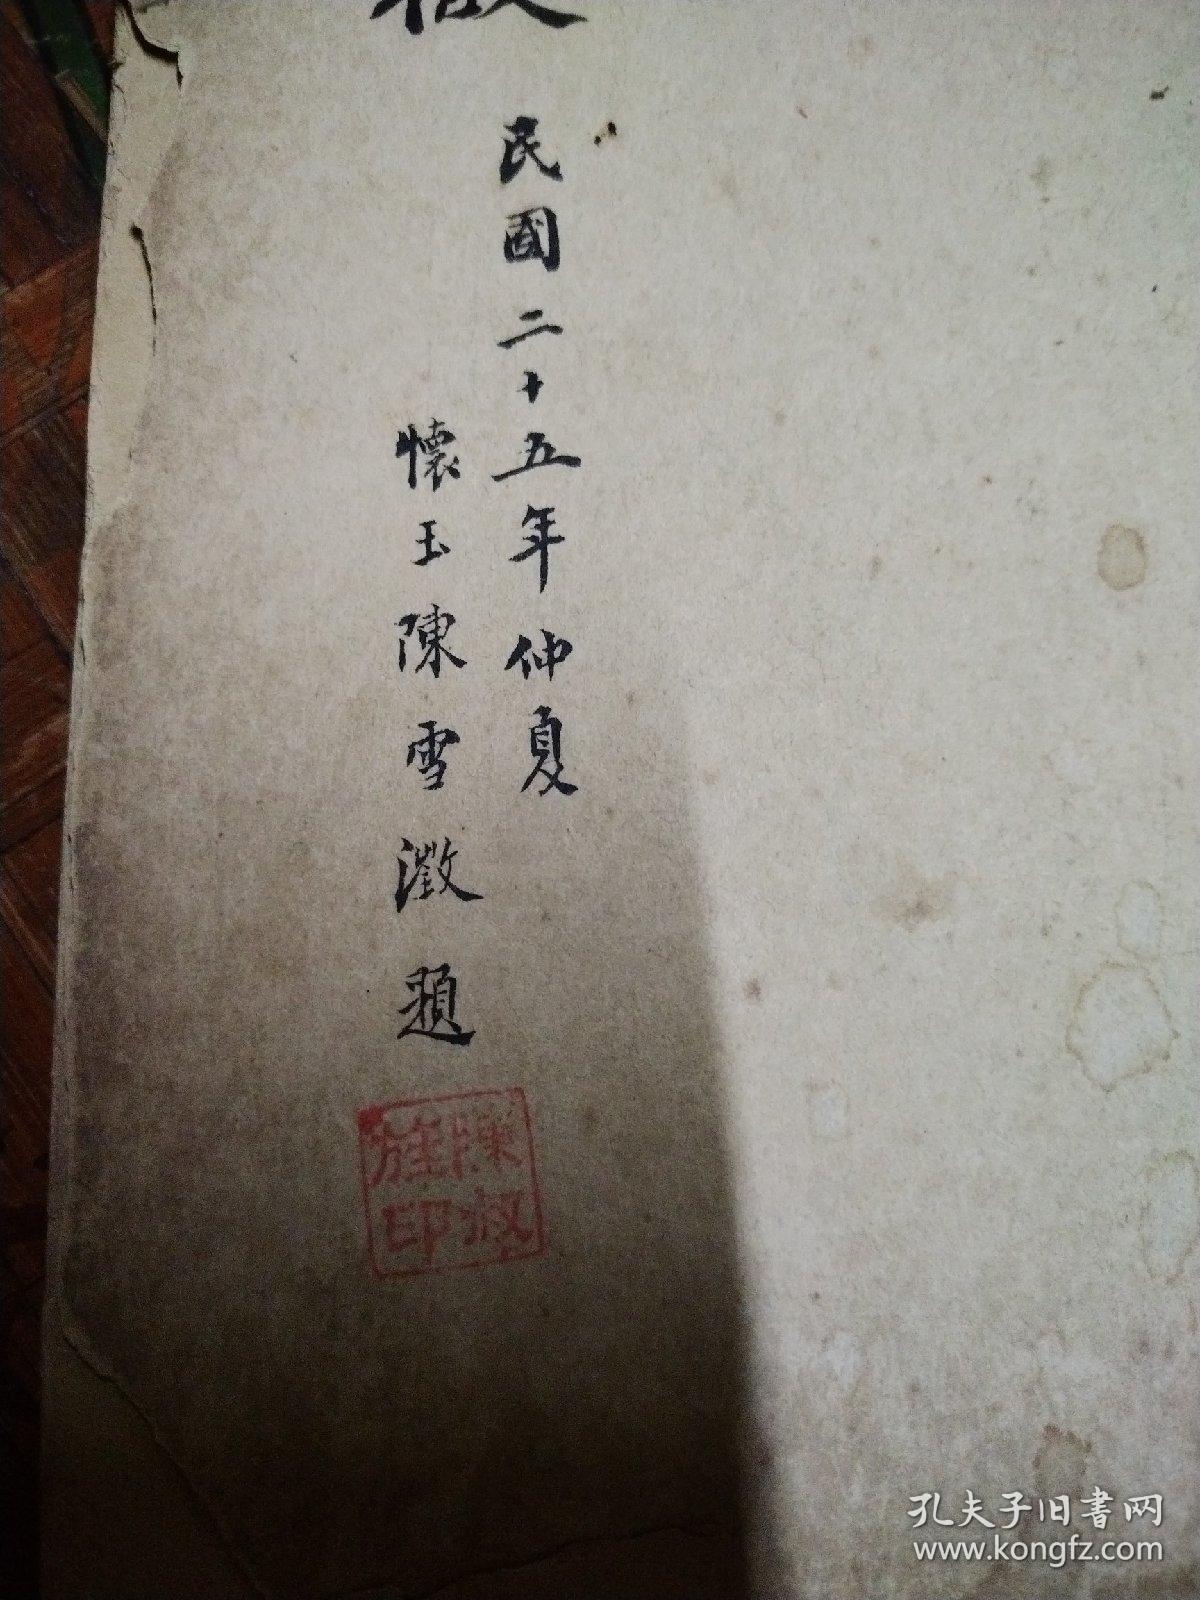 民國二十五年仲夏
懷玉陳雪澂題
陳叔
旌印
孔夫子旧書网
www.kongfz.com